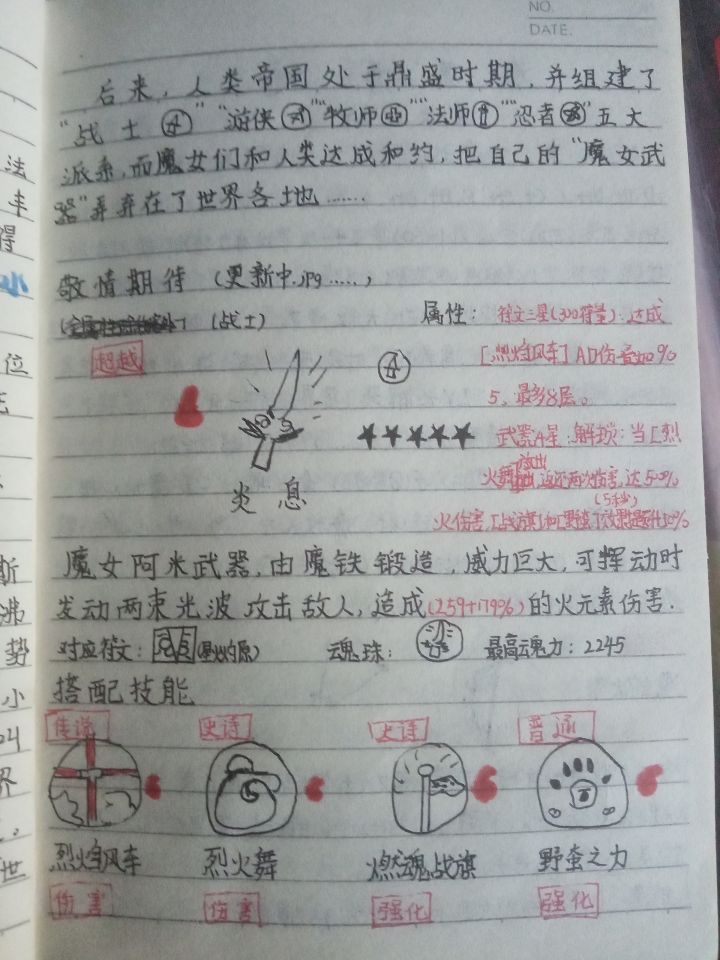 NO.
DATE.
后来，人类帝国处于鼎盛时期，并组建了
"战士" "游侠" "牧师" "法师" "忍者" 五大
派系，而魔女们和人类达成和约，把自己的"魔女武
器"弄弃在了世界各地……
敬情期待（更新中.jpg……）
（战士） 属性：符文三星(300符量)：达成
超越 [烈焰风车]AD伤害加%
5，最多8层。
武器A星：解锁：当[烈
火舞]放出，返还两次伤害，达50%
(5秒)
火伤害，[战旗]和[野蛮]效果提升10%
炎息
魔女阿米武器，由魔铁锻造，威力巨大，可挥动时
发动两束光波攻击敌人，造成(259+179%)的火元素伤害.
对应符文： 魂珠： 最高魂力：2245
搭配技能
传说 史诗 史诗 普通
烈焰风车 烈火舞 燃魂战旗 野蛮之力
伤害 伤害 强化 强化
法
丰
得
小
位
斯
沸
势
小
叫
界
世